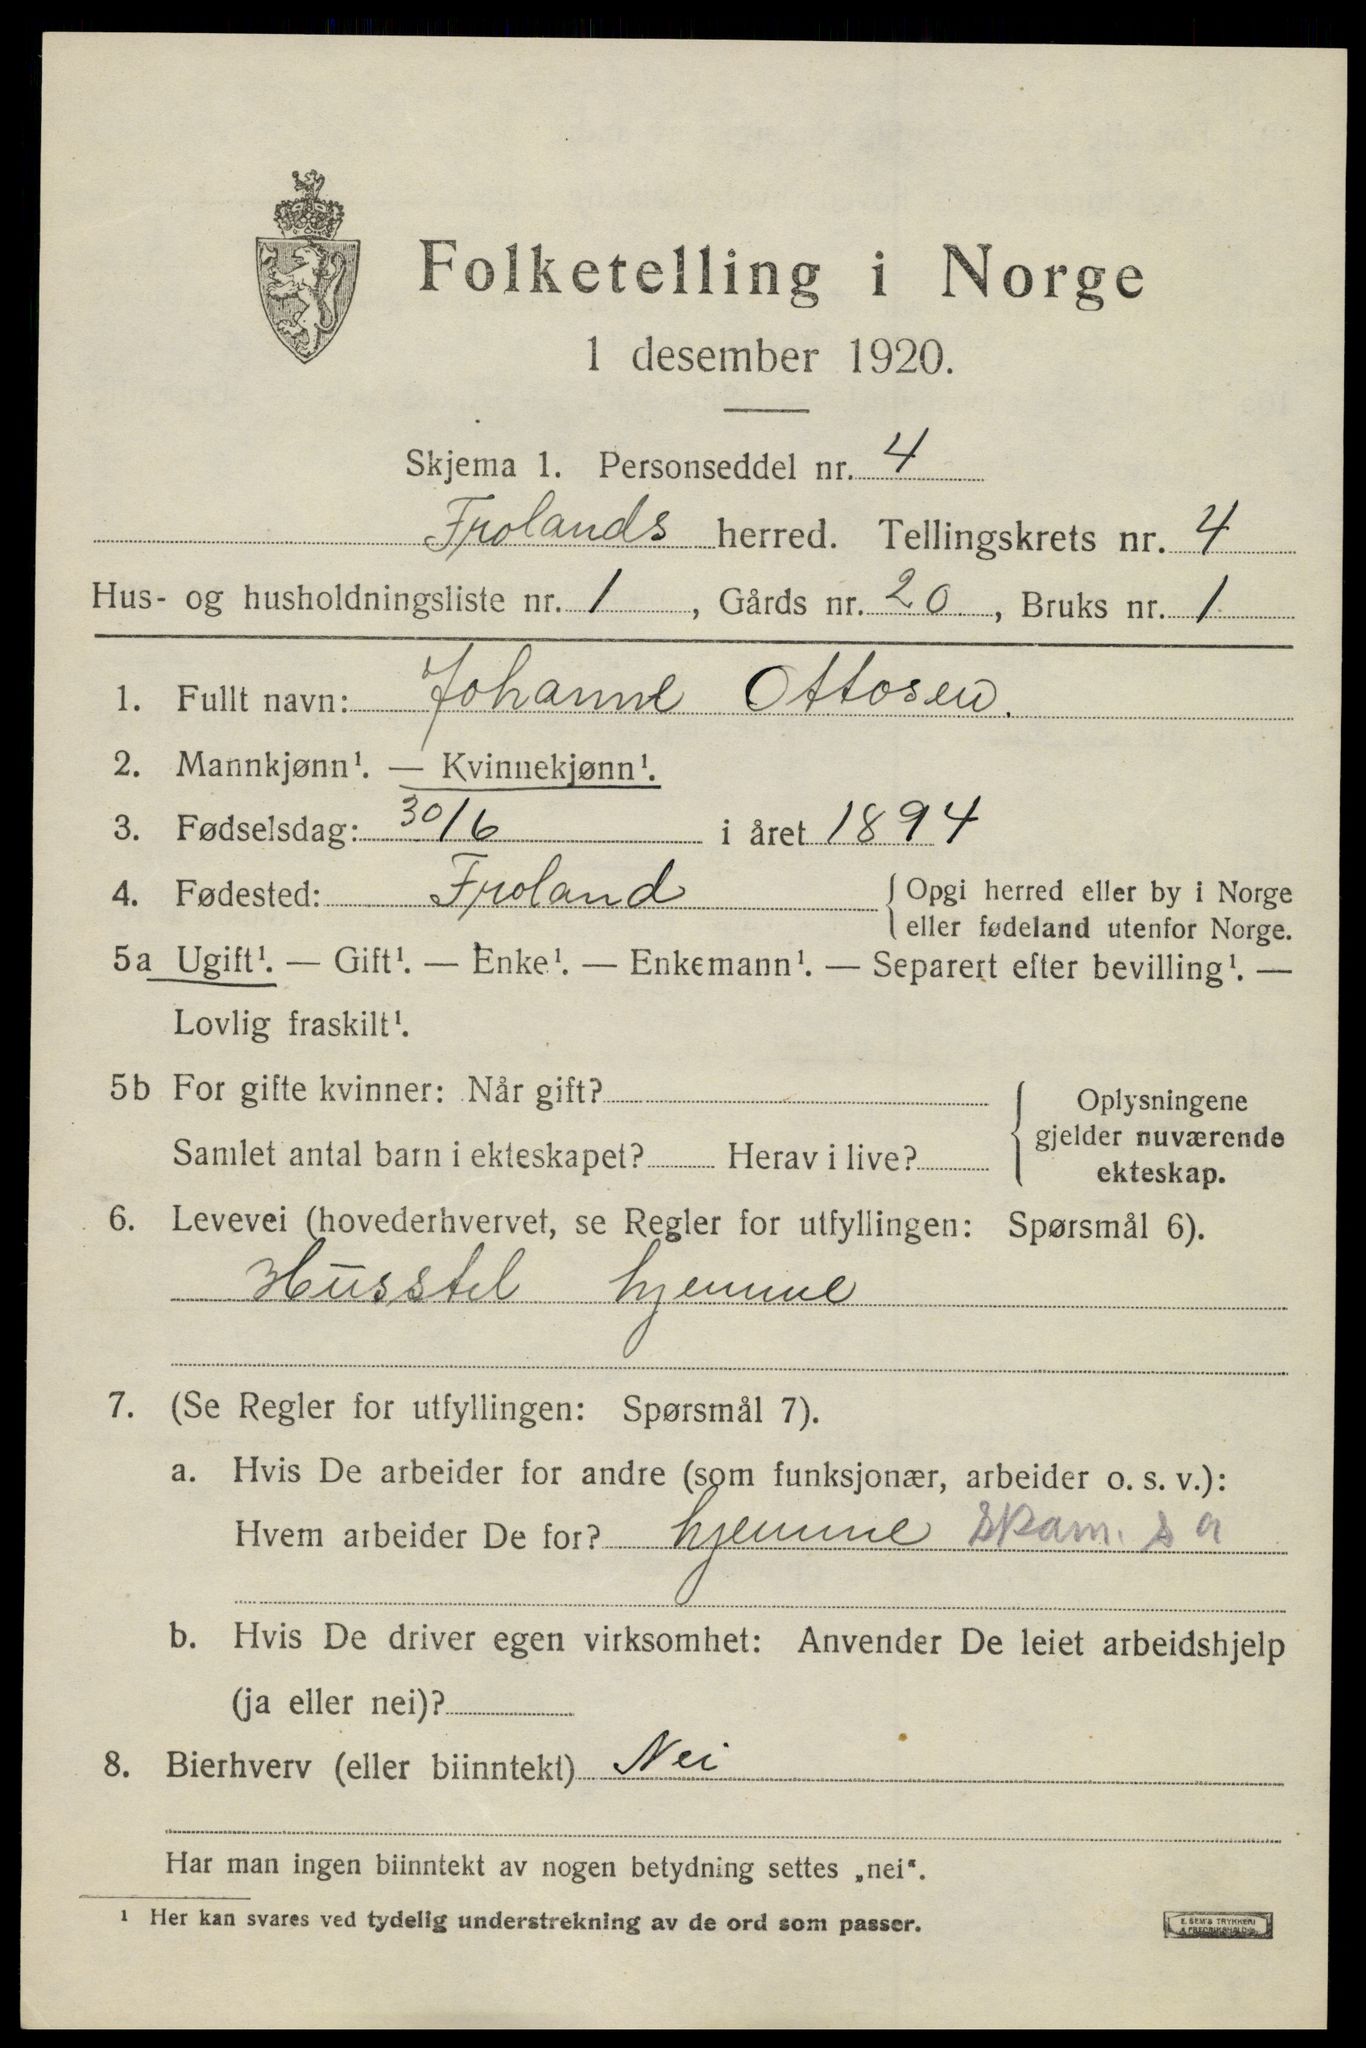 Folketelling i Norge
1 desember 1920.
Skjema 1. Personseddel nr. 4
Frolands herred. Tellingskrets nr. 4
Hus- og husholdningsliste nr. 1, Gårds nr. 20, Bruks nr. 1
1. Fullt navn: Johanne Ottosen.
2. Mannkjønn¹. — Kvinnekjønn¹.
3. Fødselsdag: 30/6 i året 1894
4. Fødested: Froland { Opgi herred eller by i Norge
eller fødeland utenfor Norge.
5a Ugift¹. — Gift¹. — Enke¹. — Enkemann¹. — Separert efter bevilling¹. —
Lovlig fraskilt¹.
5b For gifte kvinner: Når gift?
Samlet antal barn i ekteskapet? Herav i live?
Oplysningene
gjelder nuværende
ekteskap.
6. Levevei (hovederhvervet, se Regler for utfyllingen: Spørsmål 6).
Husstel hjemme
7. (Se Regler for utfyllingen: Spørsmål 7).
a. Hvis De arbeider for andre (som funksjonær, arbeider o. s. v.):
Hvem arbeider De for? hjemme
b. Hvis De driver egen virksomhet: Anvender De leiet arbeidshjelp
(ja eller nei)?
8. Bierhverv (eller biinntekt) Nei
Har man ingen biinntekt av nogen betydning settes „nei“.
¹ Her kan svares ved tydelig understrekning av de ord som passer.
E. SEM'S TRYKKERI
FREDRIKSHALD